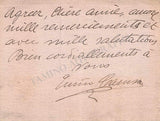 Agréez, chère amie, avec
mille remerciements et
avec mille salutations
Bien cordialement à
Vous